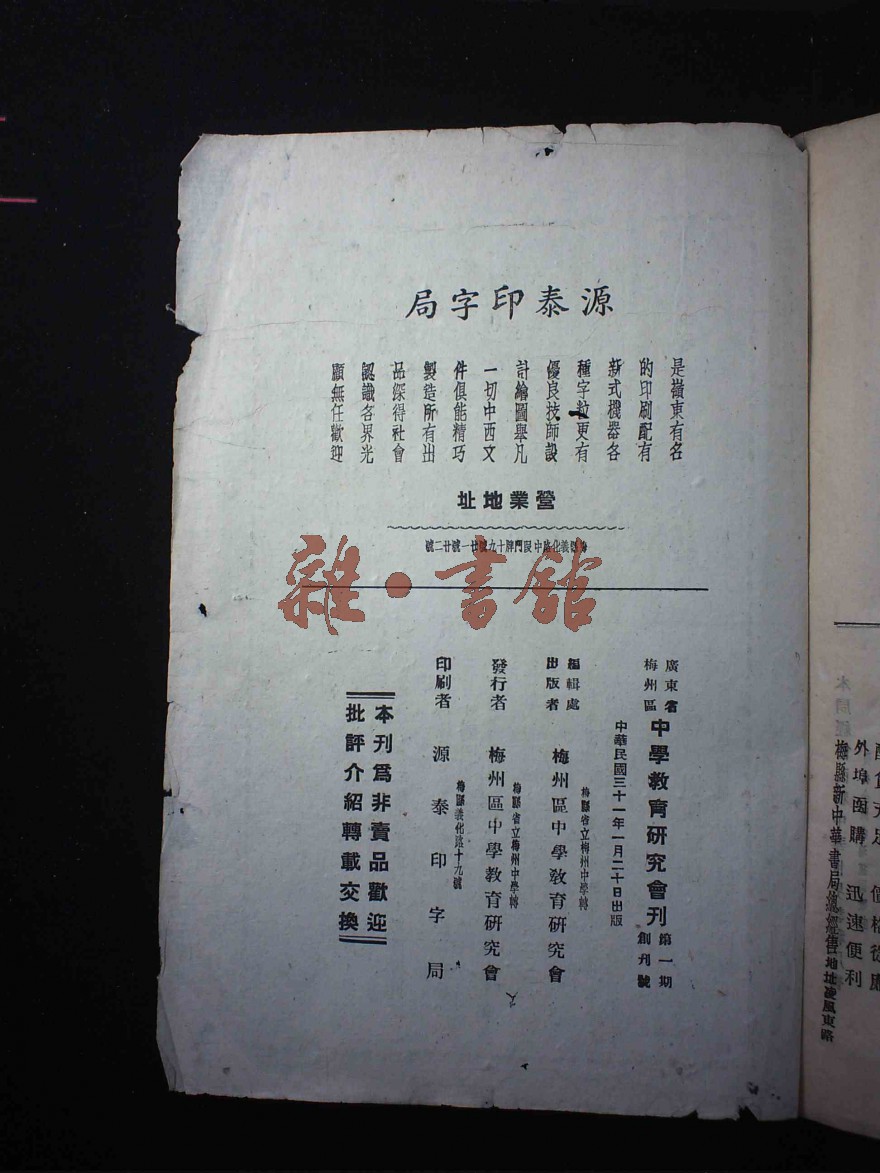 源泰印字局
是嶺東有名
的印刷配有
新式機器各
種字粒更有
優良技師設
計繪圖舉凡
一切中西文
件俱能精巧
製造所有出
品深得社會
認識各界光
顧無任歡迎
營業地址
義化路中段門牌十九號廿一號廿二號
雜·書館
廣東省
梅州區
中學教育研究會刊
第一期
創刊號
中華民國三十一年一月二十日出版
編輯處
出版者
梅州區中學教育研究會
梅縣省立梅州中學轉
發行者
梅州區中學教育研究會
梅縣省立梅州中學轉
印刷者
源泰印字局
梅縣義化路十九號
本刊為非賣品歡迎
批評介紹轉載交換
外埠函購 迅速便利
梅縣新中華書局總經售地址凌風東路